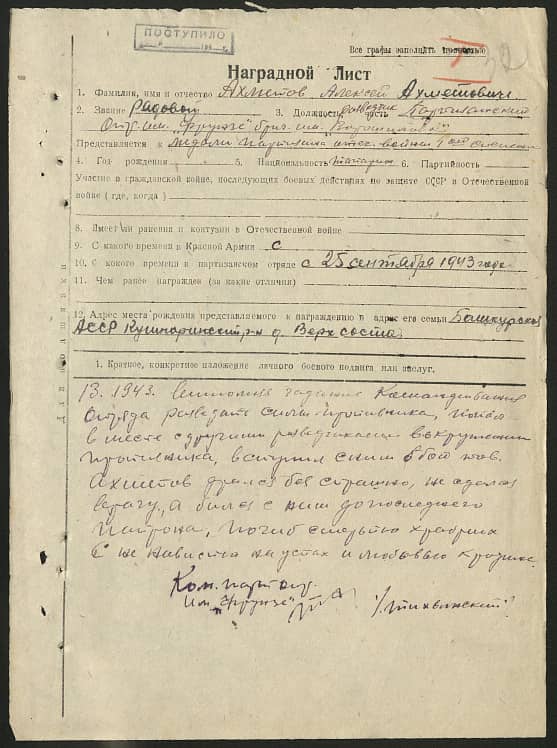 ПОСТУПИЛО
Все графы заполнять полностью
Наградной Лист
1. Фамилия, имя и отчество Ахметов Алексей Ахметович
2. Звание Рядовой 3. Должность, часть разведчик Партизанский
Отр. им. "Фрунзе" бриг. им. "Ворошилова"
Представляется к Медали Партизана отеч. войны 1 ой степени
4. Год рождения 5. Национальность татарин 6. Партийность
Участие в гражданской войне, последующих боевых действиях по защите СССР и Отечественной
войне (где, когда)
8. Имеет ли ранения и контузии в Отечественной войне
9. С какого времени в Красной Армии с
10. С какого времени в партизанском отряде с 25 сентября 1943 года
11. Чем ранее награжден (за какие отличия)
12. Адрес места рождения представляемого к награждению и адрес его семьи Башкирской
АССР Кушнаринский р-н д.
Для подшивки
1. Краткое, конкретное изложение личного боевого подвига или заслуг.
1943. выполняя задание Командования
Отряда разведать силы противника, попал
вместе с другими разведчиками в окружении
противника, вступил с ним в бой тов.
Ахметов дрался без страшно, не сдался
врагу, а бился с ним до последнего
патрона, погиб смертью храбрых
с не навистью на устах и любовью к родине.
Ком. парт. отр.
им. "Фрунзе" /Тихвинский/